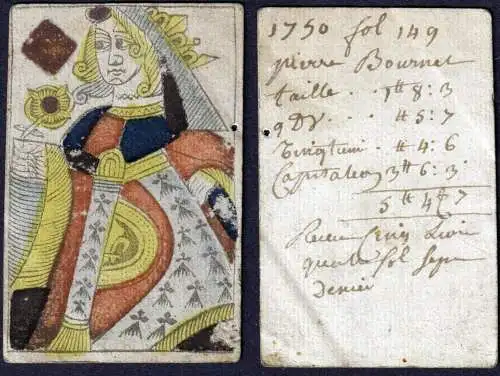 1750 fol 149
pierre Bournet
taille . . 1# 8: 3
9 Dr . . . # 5: 7
Vingtieme # 4: 6
Capitation 3# 6: 3
5 # 4 s 7
Receu Cinq Livre
quatre sol sept
denier